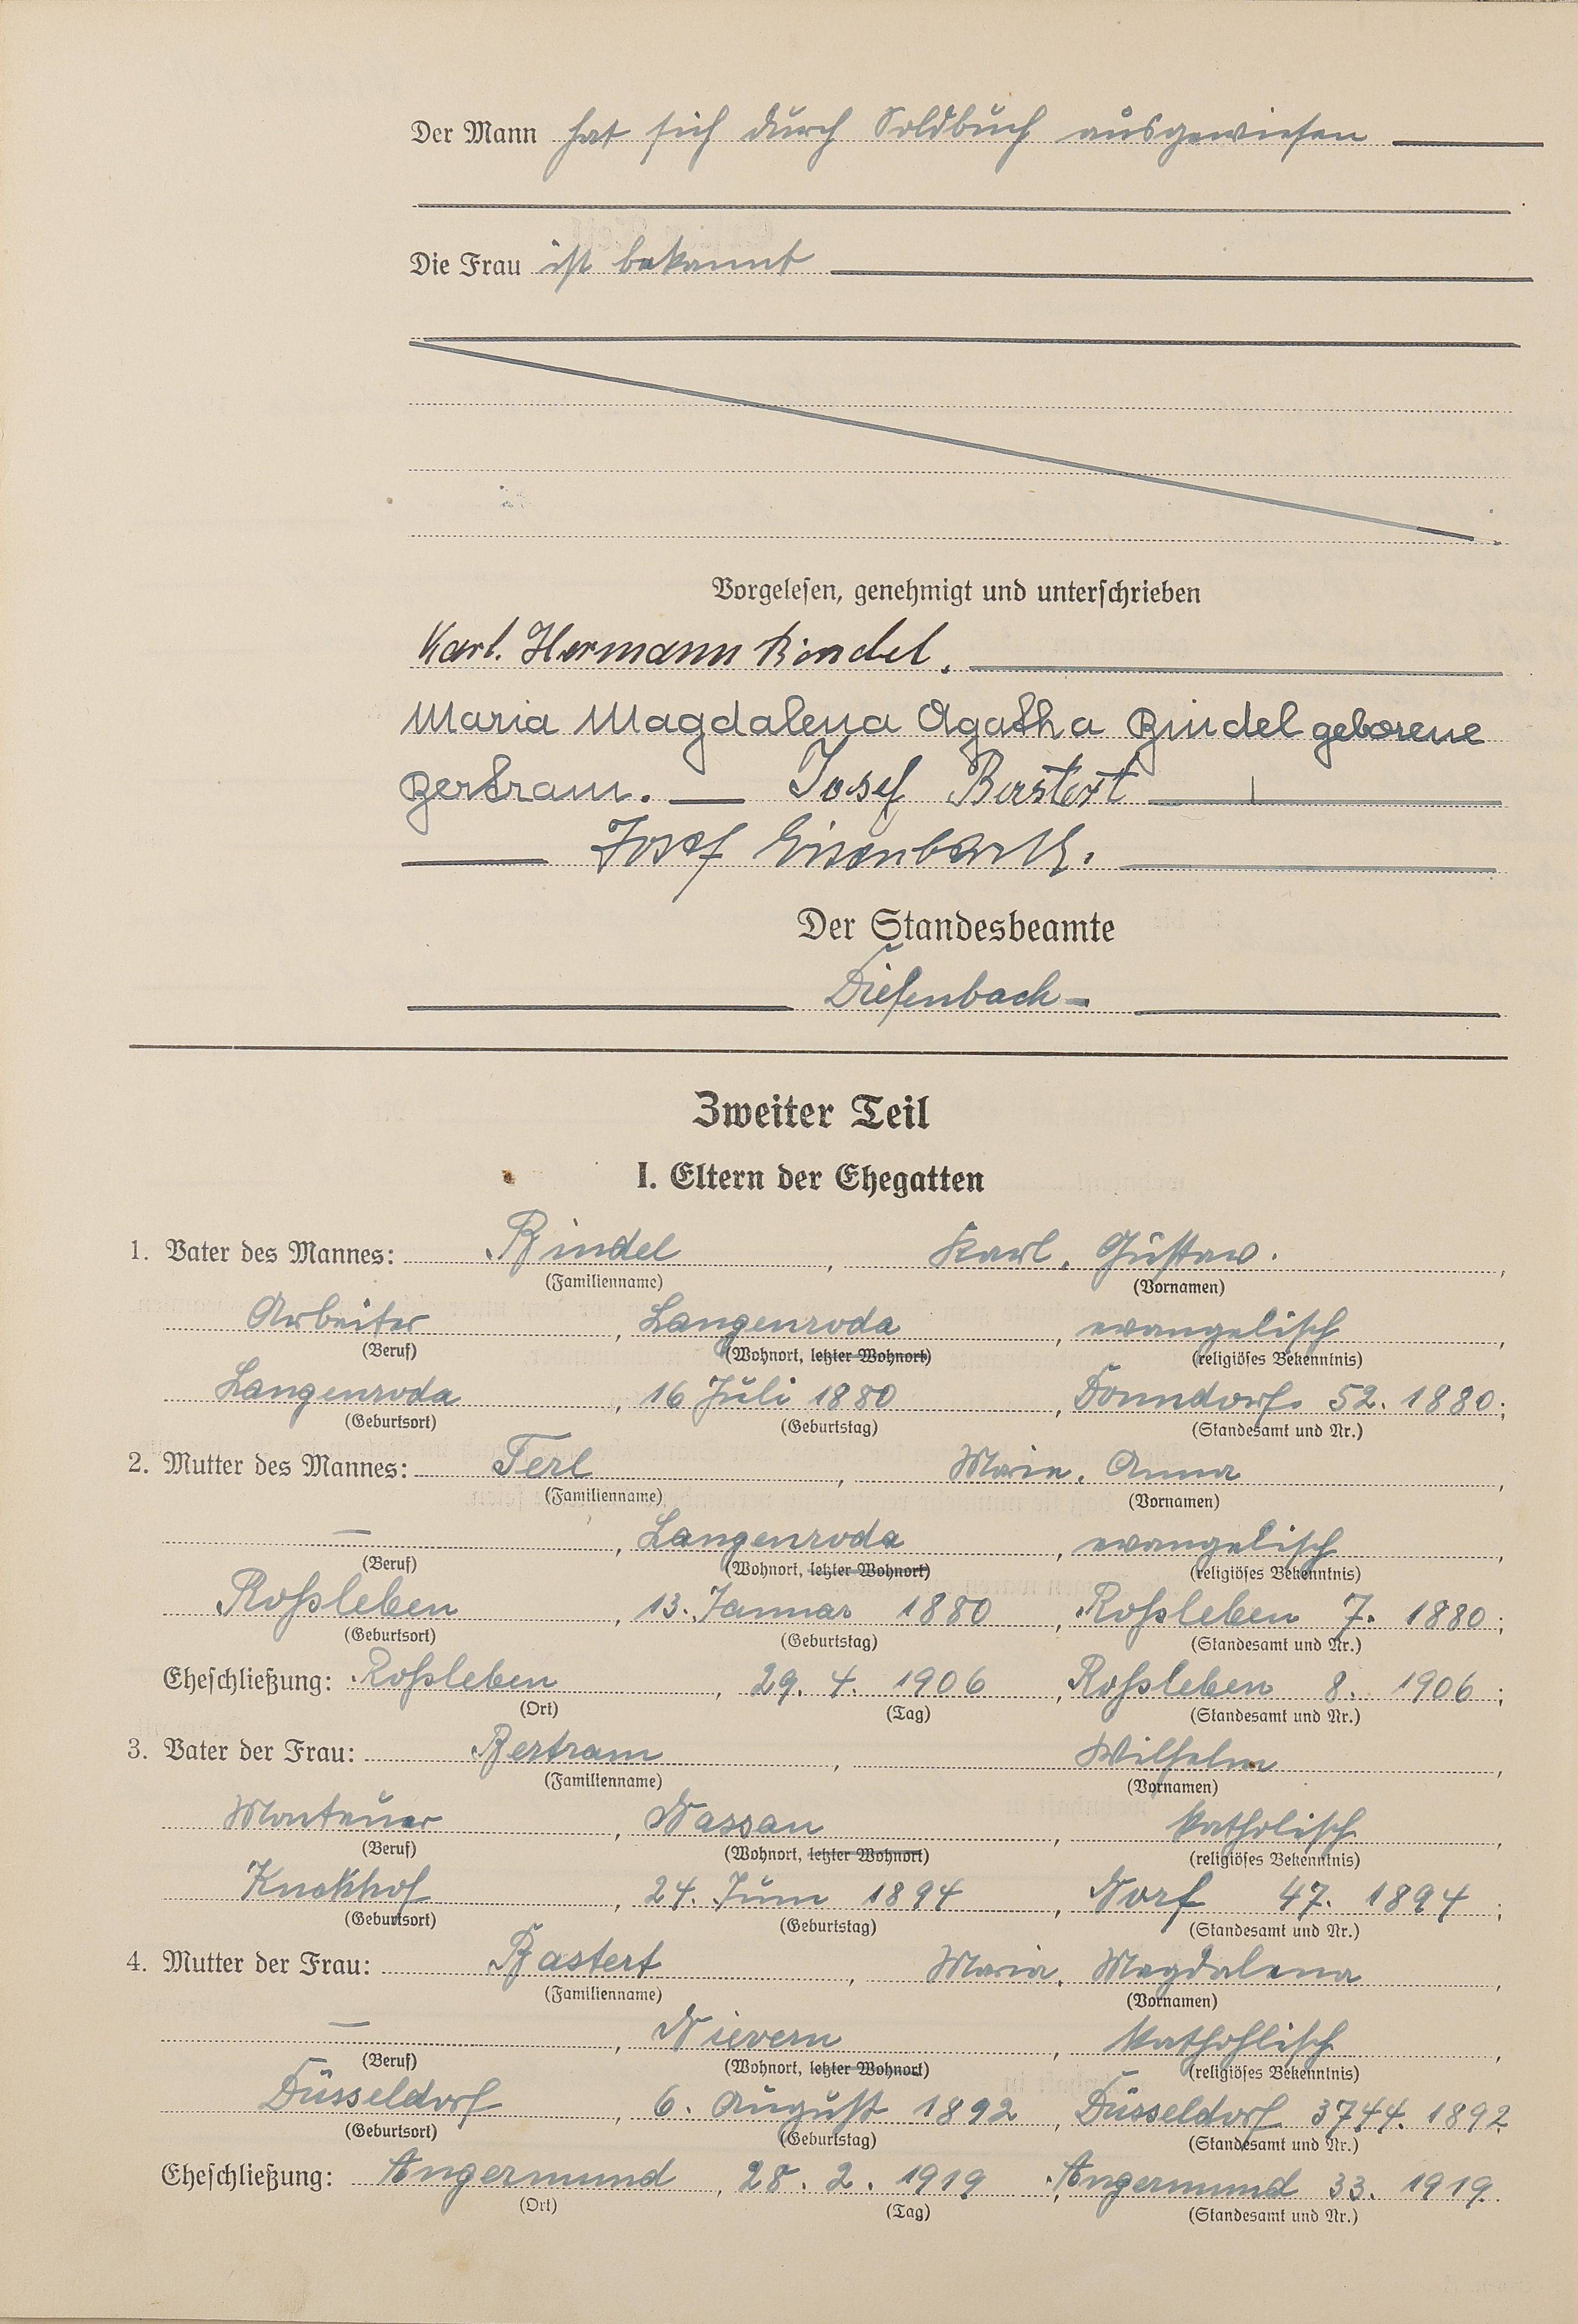 Der Mann hat sich durch Soldbuch ausgewiesen
Die Frau ist bekannt
Vorgelesen, genehmigt und unterschrieben
Karl. Hermann Bindel.
Maria Magdalena Agatha Bindel geborene
Bertram. — Josef Bastert
Josef Eisenbarth.
Der Standesbeamte
Diefenbach
Zweiter Teil
I. Eltern der Ehegatten
1. Vater des Mannes: Bindel, Karl, Gustav.
(Familienname) (Vornamen)
Arbeiter, Langenroda, evangelisch,
(Beruf) (Wohnort, letzter Wohnort) (religiöses Bekenntnis)
Langenroda, 16 Juli 1880, Donndorf. 52. 1880;
(Geburtsort) (Geburtstag) (Standesamt und Nr.)
2. Mutter des Mannes: Terl, Marie, Anna,
(Familienname) (Vornamen)
—, Langenroda, evangelisch,
(Beruf) (Wohnort, letzter Wohnort) (religiöses Bekenntnis)
Roßleben, 13. Januar 1880, Roßleben 7. 1880;
(Geburtsort) (Geburtstag) (Standesamt und Nr.)
Eheschließung: Roßleben, 29. 4. 1906, Roßleben 8. 1906;
(Ort) (Tag) (Standesamt und Nr.)
3. Vater der Frau: Bertram, Wilhelm,
(Familienname) (Vornamen)
Monteuer, Nassau, katholisch,
(Beruf) (Wohnort, letzter Wohnort) (religiöses Bekenntnis)
24. Juni 1894, Norf 47. 1894;
(Geburtsort) (Geburtstag) (Standesamt und Nr.)
4. Mutter der Frau: Bastert, Maria, Magdalena,
(Familienname) (Vornamen)
—, Nievern, kathohlisch,
(Beruf) (Wohnort, letzter Wohnort) (religiöses Bekenntnis)
Düsseldorf, 6. August 1892, Düsseldorf 3744. 1892
(Geburtsort) (Geburtstag) (Standesamt und Nr.)
Eheschließung: Angermund, 28. 2. 1919, Angermund 33. 1919.
(Ort) (Tag) (Standesamt und Nr.)